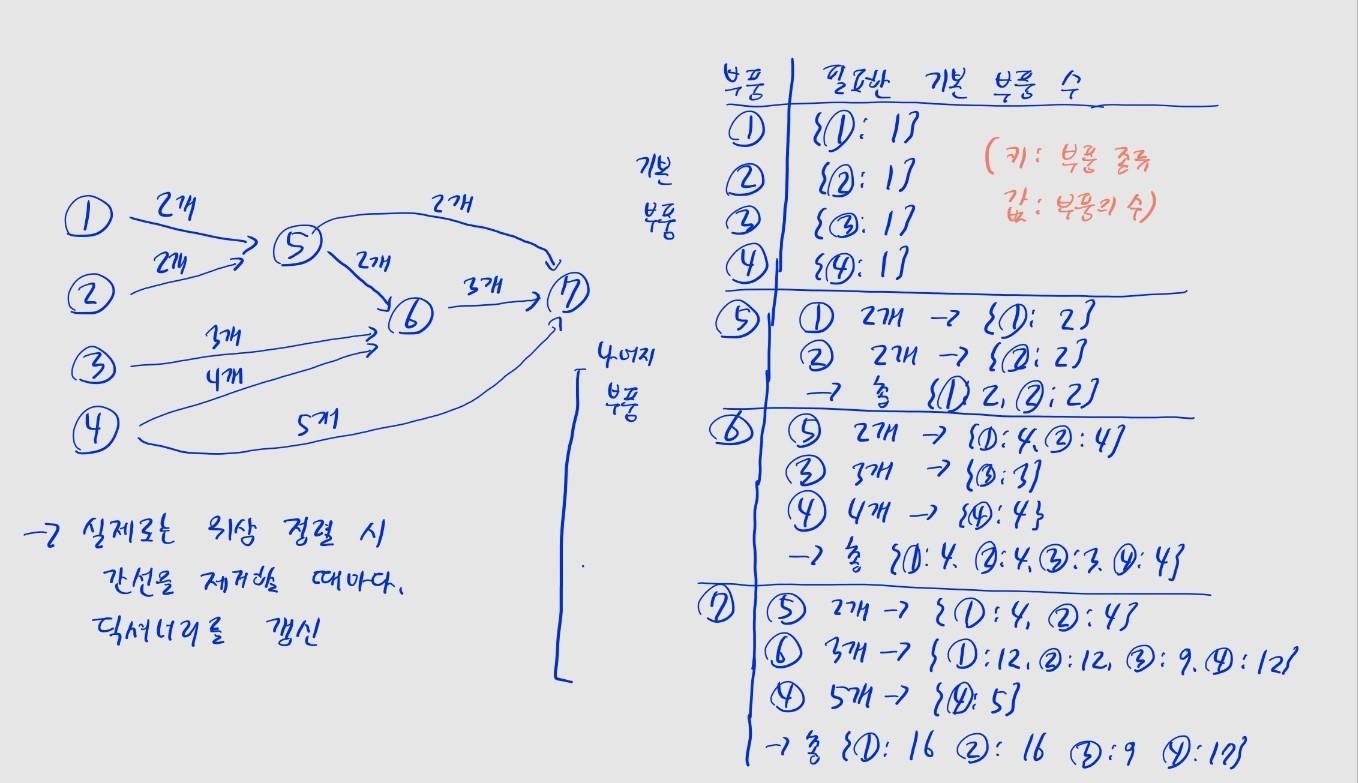 ① 2개 ⑤ 2개
② 2개 2개
⑥ 3개 ⑦
③ 3개
④ 4개
5개
→ 실제로는 위상 정렬 시
간선을 제거할 때마다,
딕셔너리를 갱신
부품 필요한 기본 부품 수
기본
부품
① {①: 1}
② {②: 1}
③ {③: 1}
④ {④: 1}
(키: 부품 종류
값: 부품의 수)
나머지
부품
⑤ ① 2개 → {①: 2}
② 2개 → {②: 2}
→ 총 {① 2, ②: 2}
⑥ ⑤ 2개 → {①: 4, ②: 4}
③ 3개 → {③: 3}
④ 4개 → {④: 4}
→ 총 {①: 4. ②: 4, ③: 3. ④: 4}
⑦ ⑤ 2개 → {①: 4, ②: 4}
⑥ 3개 → {①: 12, ②: 12, ③: 9, ④: 12}
④ 5개 → {④: 5}
→ 총 {①: 16 ②: 16 ③: 9 ④: 17}